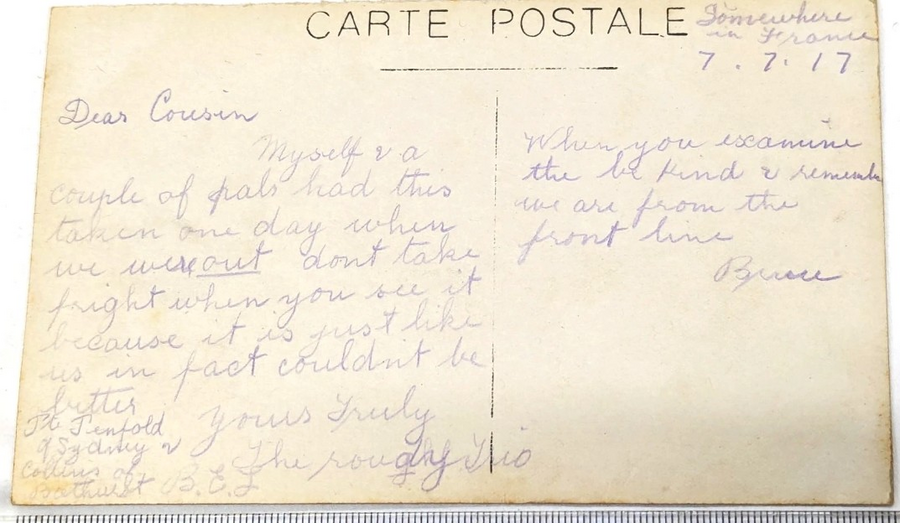 CARTE POSTALE
Somewhere
in France
7.7.17
Dear Cousin
Myself & a
couple of pals had this
taken one day when
we were out dont take
fright when you see it
because it is just like
us in fact couldn't be
better
Yours Truly
The roughy Trio
B.E.F
Pt Penfold
of Sydney &
Collins of
Bathurst
When you examine
the be kind & rememb
we are from the
front line